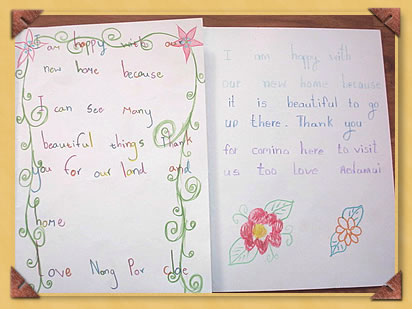 I am happy with our
new home because
I can see many
beautiful things thank
you for our land and
home
Love Nong Por
I am happy with
our new home because
it is beautiful to go
up there. Thank you
for coming here to visit
us too Love